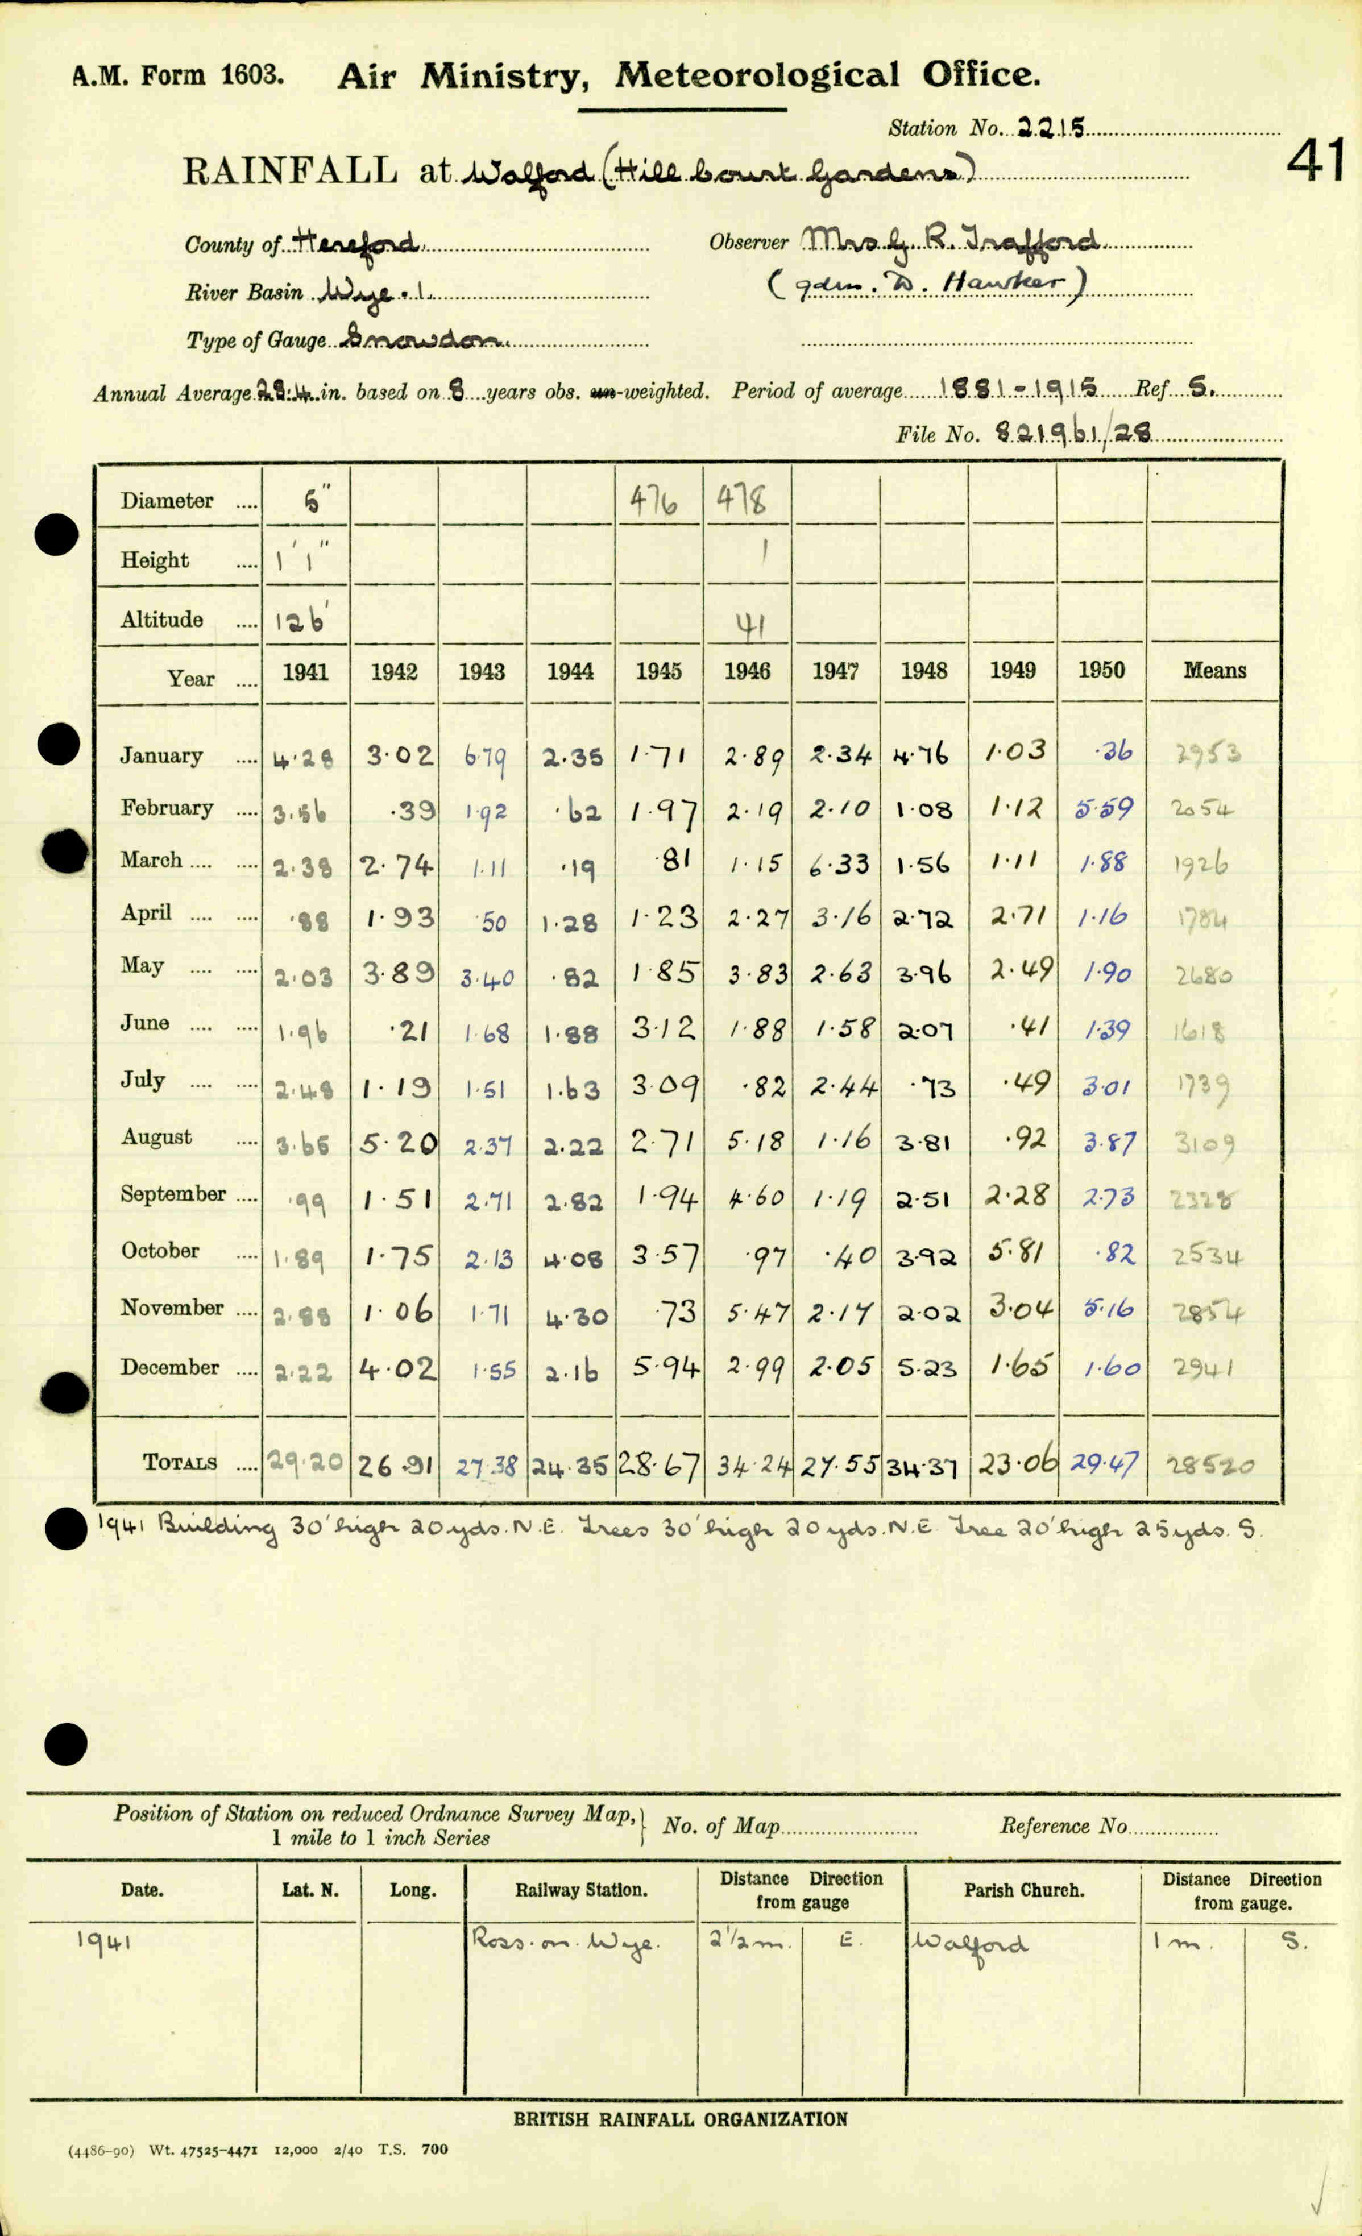 A.M. Form 1603. Air Ministry, Meteorological Office.
Station No. 2215
41
RAINFALL at Walford (Hill Court Gardens)
County of Hereford Observer Mrs G. R. Trafford
River Basin Wye. 1. (gdnr. D. Hawker)
Type of Gauge Snowdon.
Annual Average 28.4 in. based on 8 years obs. un-weighted. Period of average 1881-1915 Ref S.
File No. 821961/28
Diameter .... 5" 476 478
Height .... 1'1" 1
Altitude .... 126' 41
Year .... 1941 1942 1943 1944 1945 1946 1947 1948 1949 1950 Means
January .... 4.28 3.02 6.79 2.35 1.71 2.89 2.34 4.76 1.03 .36 2953
February .... 3.56 .39 1.92 .62 1.97 2.19 2.10 1.08 1.12 5.59 2054
March .... .... 2.38 2.74 1.11 .19 .81 1.15 6.33 1.56 1.11 1.88 1926
April .... .... .88 1.93 .50 1.28 1.23 2.27 3.16 2.72 2.71 1.16 1784
May .... .... 2.03 3.89 3.40 .82 1.85 3.83 2.63 3.96 2.49 1.90 2680
June .... .... 1.96 .21 1.68 1.88 3.12 1.88 1.58 2.07 .41 1.39 1618
July .... .... 2.48 1.19 1.51 1.63 3.09 .82 2.44 .73 .49 3.01 1739
August .... 3.65 5.20 2.37 2.22 2.71 5.18 1.16 3.81 .92 3.87 3109
September .... .99 1.51 2.71 2.82 1.94 4.60 1.19 2.51 2.28 2.73 2328
October .... 1.89 1.75 2.13 4.08 3.57 .97 .40 3.92 5.81 .82 2534
November .... 2.88 1.06 1.71 4.30 .73 5.47 2.17 2.02 3.04 5.16 2854
December .... 2.22 4.02 1.55 2.16 5.94 2.99 2.05 5.23 1.65 1.60 2941
TOTALS .... 29.20 26.91 27.38 24.35 28.67 34.24 27.55 34.37 23.06 29.47 28520
1941 Building 30' high 20 yds. N.E. Trees 30' high 20 yds. N.E. Tree 20' high 25 yds. S.
Position of Station on reduced Ordnance Survey Map, 1 mile to 1 inch Series No. of Map Reference No.
Date. Lat. N. Long. Railway Station. Distance Direction from gauge Parish Church. Distance Direction from gauge.
1941 Ross-on-Wye. 2½ m. E. Walford 1 m. S.
BRITISH RAINFALL ORGANIZATION
(4486-90) Wt. 47525-4471 12,000 2/40 T.S. 700